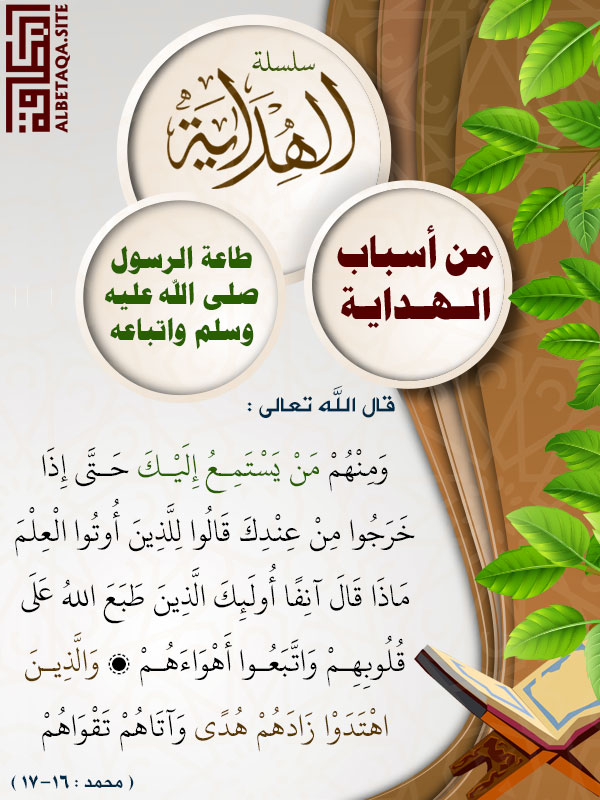 البطاقة
ALBETAQA.SITE
سلسلة
الهُدَايَة
من أسباب
الـهـدايـة
طاعة الرسول
صلى الله عليه
وسلم واتباعه
قال اللَّه تعالى :
وَمِنْهُمْ مَنْ يَسْتَمِـعُ إِلَيْـكَ حَـتَّى إِذَا
خَرَجُوا مِنْ عِنْدِكَ قَالُوا لِلَّذِينَ أُوتُوا الْعِلْمَ
مَاذَا قَالَ آنِفًا أُولَئِكَ الَّذِينَ طَبَعَ اللهُ عَلَى
قُلُوبِهِـمْ وَاتَّبَعُـوا أَهْوَاءَهُـمْ ۞ وَالَّذِيـنَ
اهْتَدَوْا زَادَهُمْ هُدًى وَآتَاهُمْ تَقْوَاهُمْ
( محمد : ١٦-١٧ )